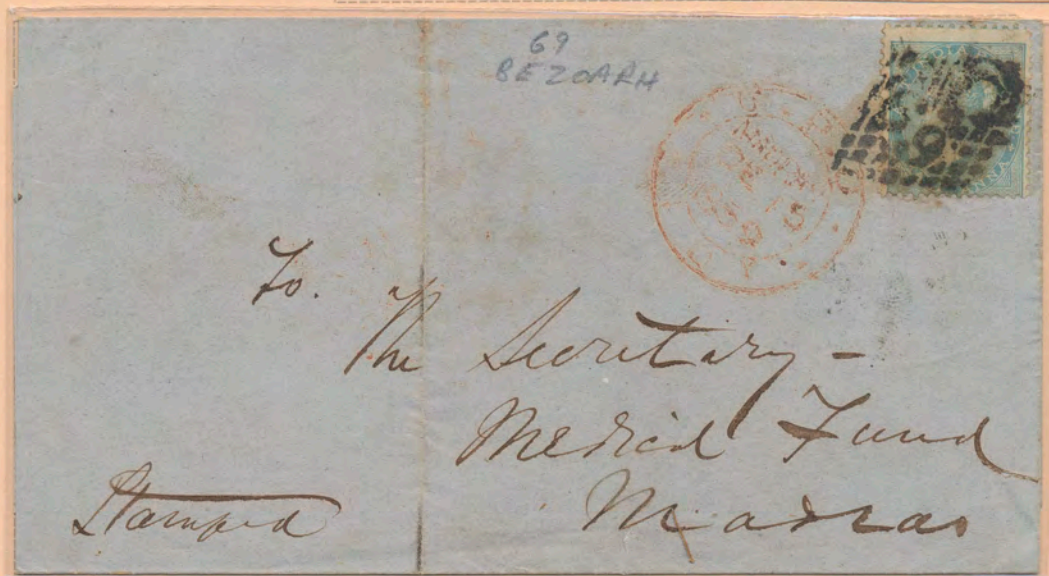 69
BEZOARH
To.
The Secretary -
Medical Fund
Madras
Stamped